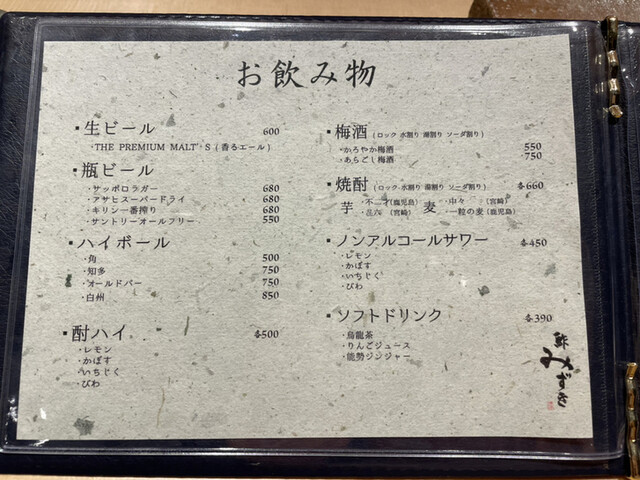 お飲み物
▪生ビール 600
・THE PREMIUM MALT'S (香るエール)
▪瓶ビール
・サッポロラガー 680
・アサヒスーパードライ 680
・キリン一番搾り 680
・サントリーオールフリー 550
▪ハイボール
・角 500
・知多 750
・オールドパー 750
・白州 850
▪酎ハイ 各500
・レモン
・かぼす
・いちじく
・びわ
▪梅酒 (ロック 水割り 湯割り ソーダ割り)
・かろやか梅酒 550
・あらごし梅酒 750
▪焼酎 (ロック 水割り 湯割り ソーダ割り) 各660
芋 ・不二才(鹿児島) 麦 ・中々 (宮崎)
(宮崎) ・一粒の麦(鹿児島)
▪ノンアルコールサワー 各450
・レモン
・かぼす
・いちじく
・びわ
▪ソフトドリンク 各390
・烏龍茶
・りんごジュース
・能勢ジンジャー
鮓